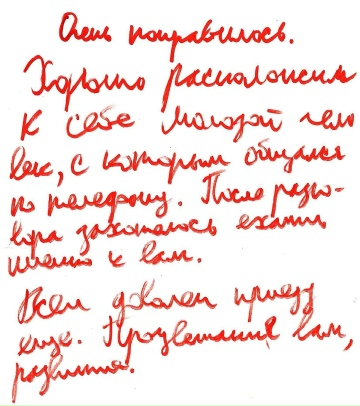 Очень понравилось.
Хорошо расположил
к себе молодой чело
век, с которым общался
по телефону. После разго-
вора захотелось ехать
именно к вам.
Всем доволен приеду
еще. Процветания вам,
развития.